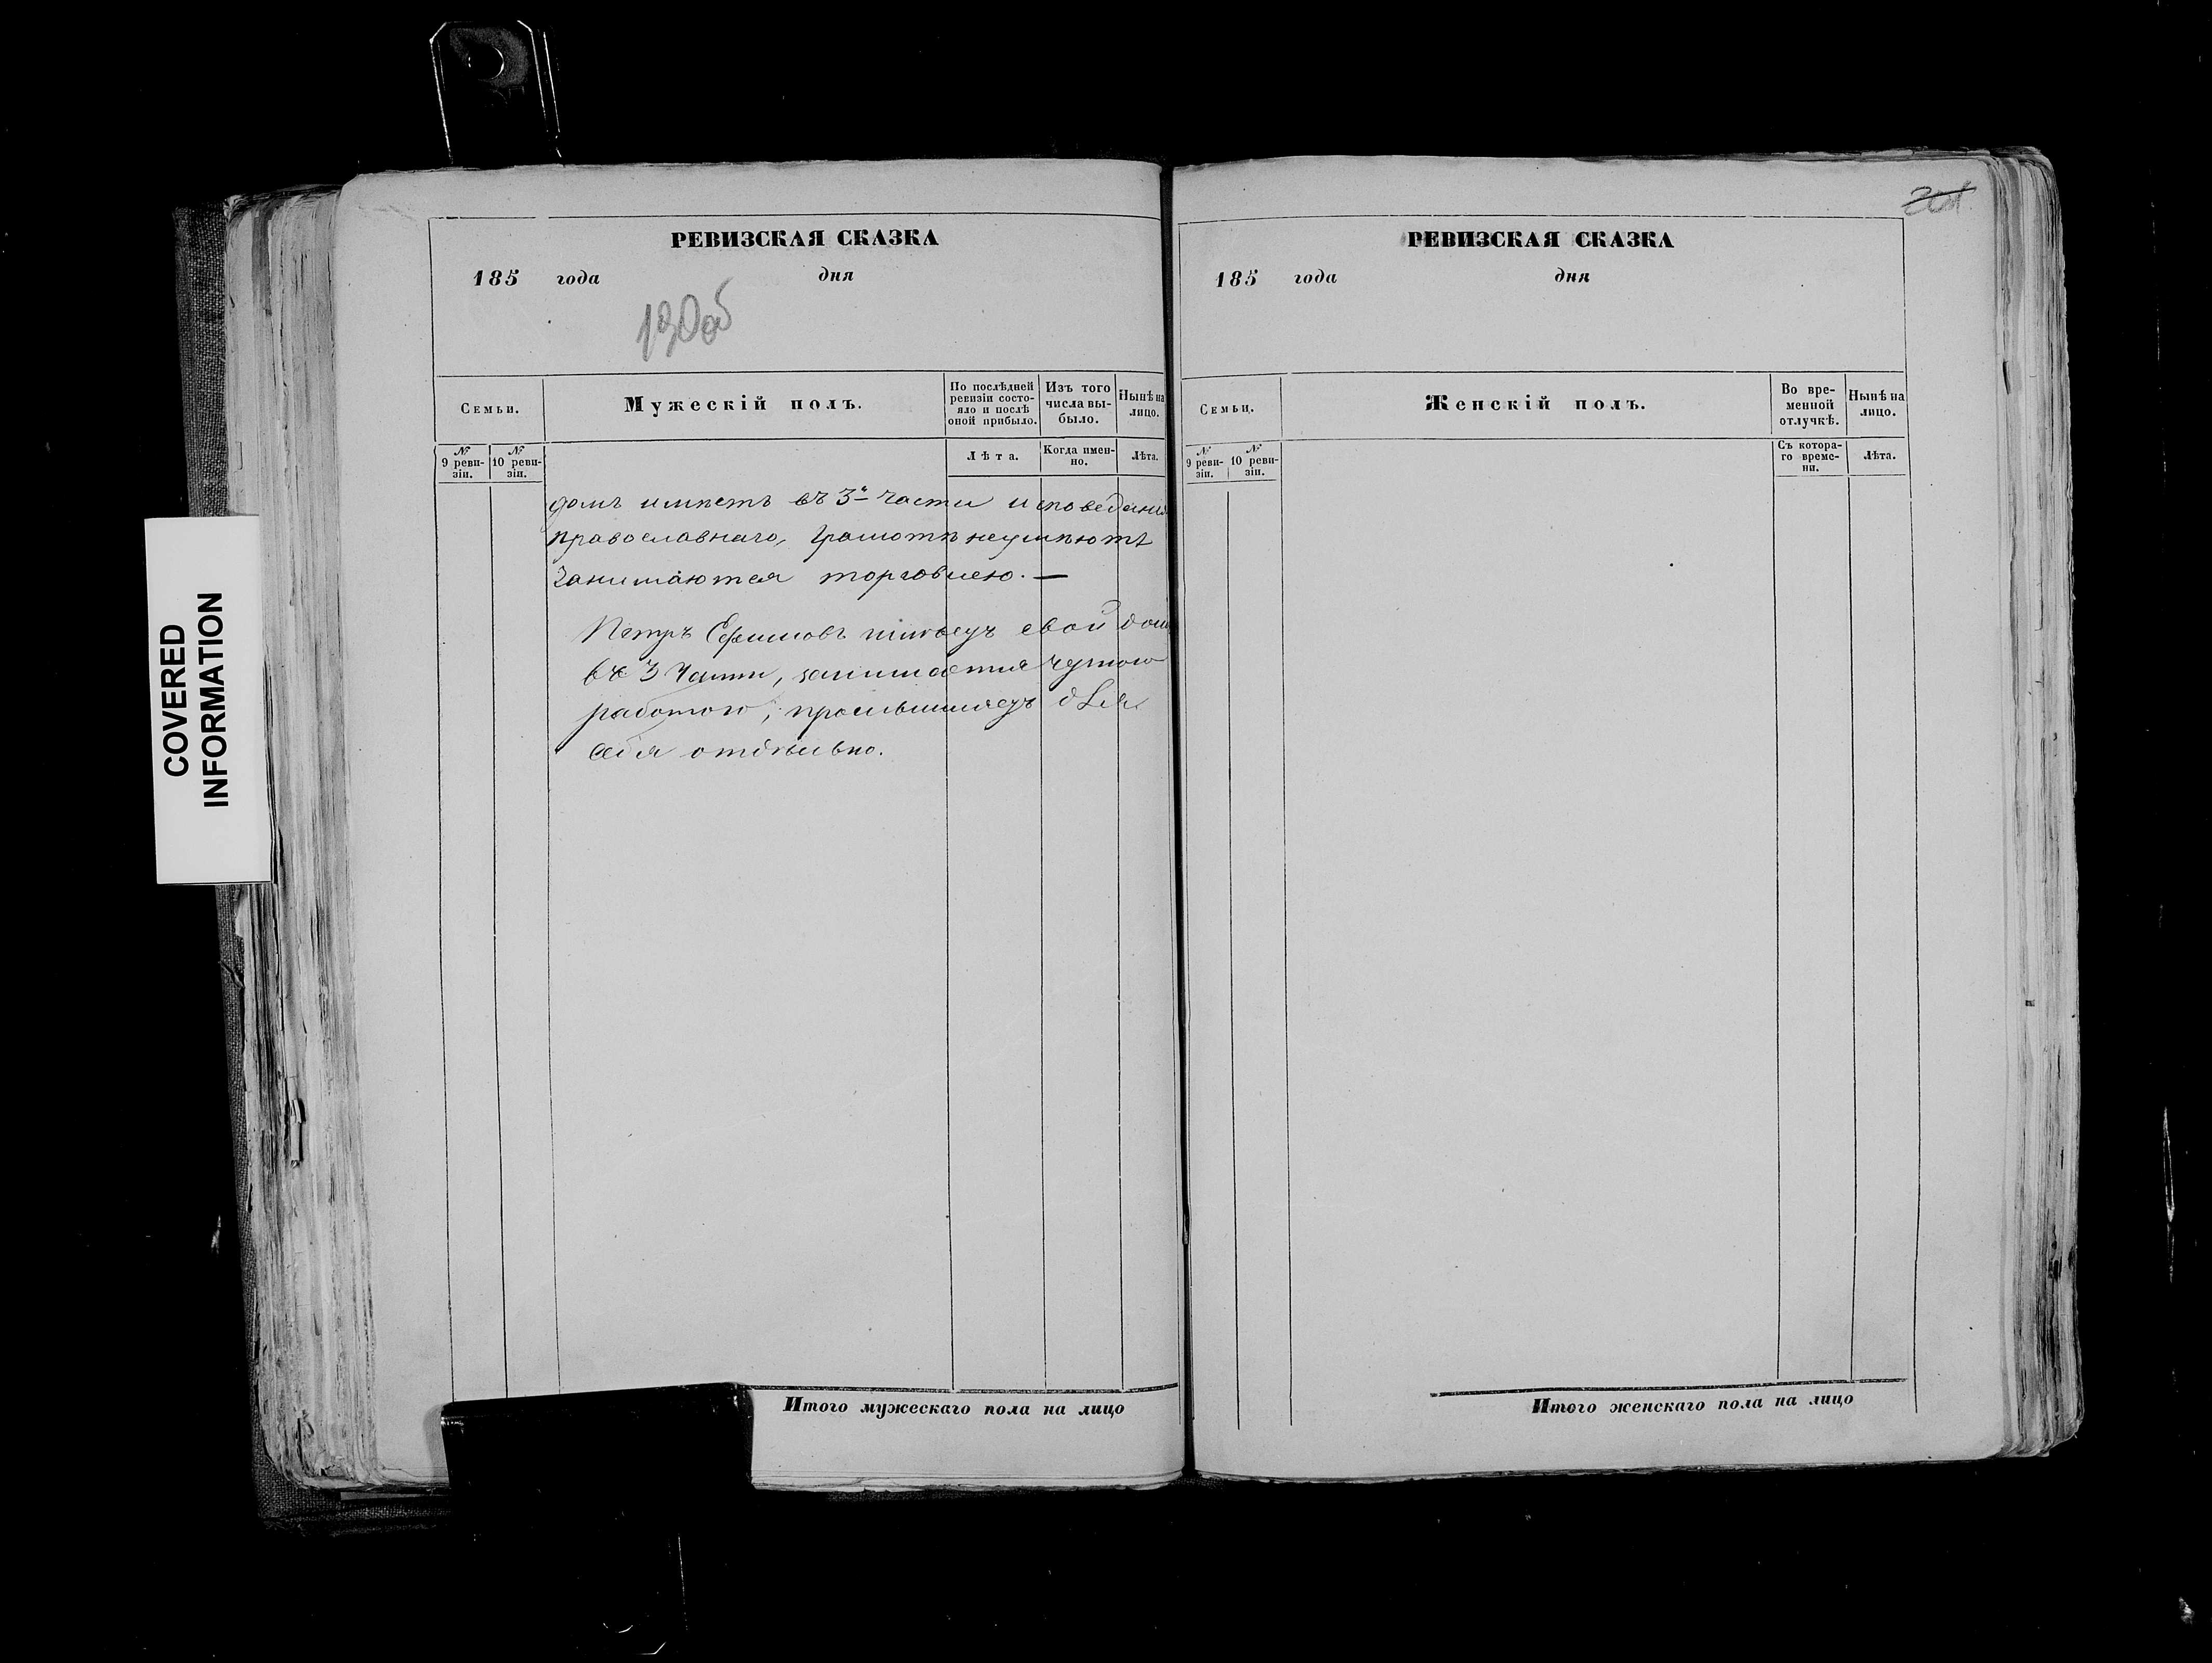 COVERED
INFORMATION
РЕВИЗСКАЯ СКАЗКА
185 года дня
190об
Семьи.
Мужескій полъ.
По послѣдней
ревизіи состо-
яло и послѣ
оной прибыло.
Изъ того
числа вы-
было.
Нынѣ на
лицо.
№
9 реви-
зіи.
№
10 реви-
зіи.
Лѣта.
Когда имен-
но.
Лѣта.
домъ имѣетъ въ 3й части исповеданія
православнаго, Грамотѣ неумѣютъ
Занимаются торговлею. —
Петръ Ефимовъ свой домъ
въ 3 части, занимается
работою, для
себя отдѣльно.
Итого мужескаго пола на лицо
РЕВИЗСКАЯ СКАЗКА
185 года дня
Семьи.
Женскій полъ.
Во вре-
менной
отлучкѣ.
Нынѣ на
лицо.
№
9 реви-
зіи.
№
10 реви-
зіи.
Съ котора-
го време-
ни.
Лѣта.
Итого женскаго пола на лицо